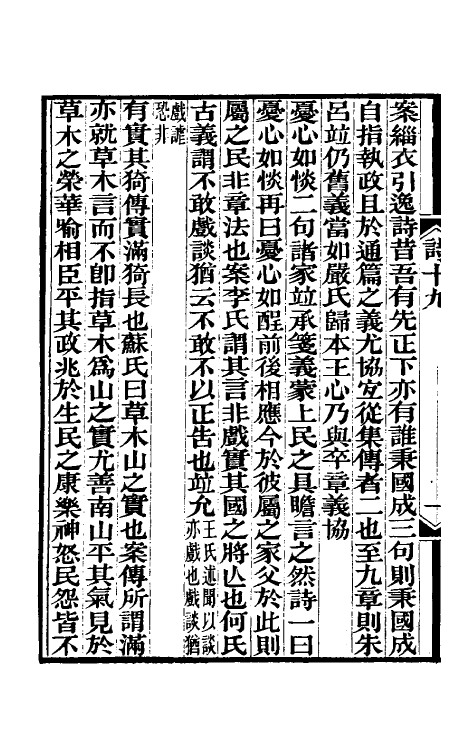 案緇衣引逸詩昔吾有先正下亦有誰秉國成三句則秉國成
自指執政且於通篇之義尤協宐從集傳者二也至九章則朱
呂竝仍舊義當如嚴氏歸本王心乃與卒章義協
憂心如惔二句諸家竝承箋義蒙上民之具瞻言之然詩一曰
憂心如惔再曰憂心如酲前後相應今於彼屬之家父於此則
屬之民非章法也案李氏謂其言非戲實其國之將亾也何氏
古義謂不敢戲談猶云不敢不以正告也竝允王氏述聞以談亦戲也戲談猶
戲謔恐非
有實其猗傳實滿猗長也蘇氏曰草木山之實也案傳所謂滿
亦就草木言而不卽指草木爲山之實尤善南山平其氣見於
草木之榮華喻相臣平其政兆於生民之康樂神怒民怨皆不
詩十九